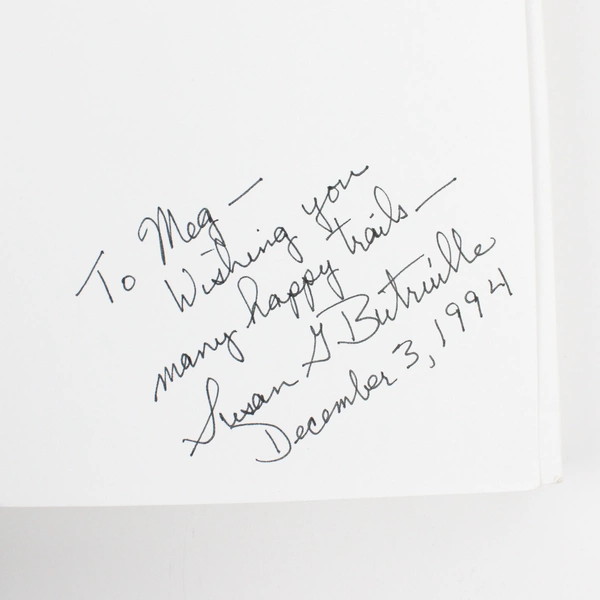 To Meg —
Wishing you
many happy trails —
Susan G Butruille
December 3, 1994